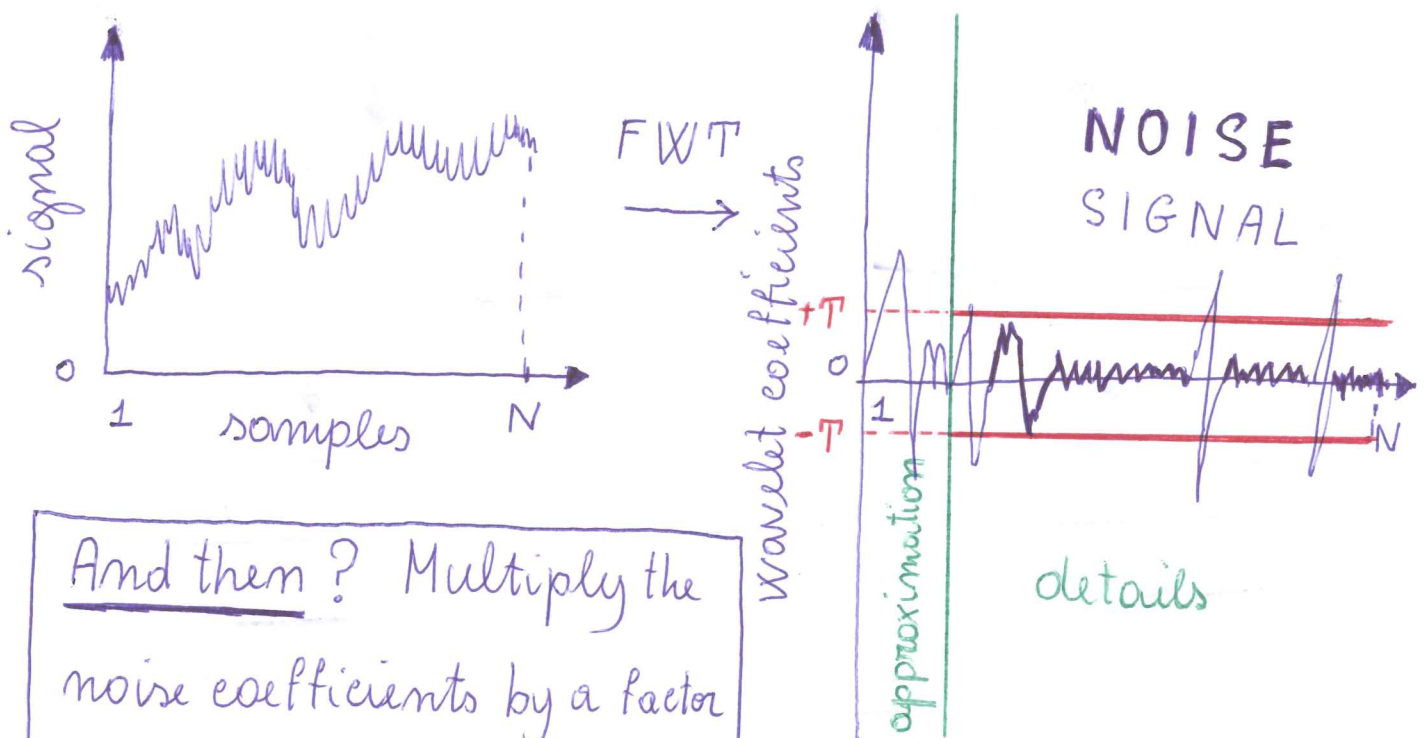 signal
0
1
samples
N
FWT
wavelet coefficients
+T
0
-T
1
N
NOISE
SIGNAL
approximation
details
And then? Multiply the
noise coefficients by a factor